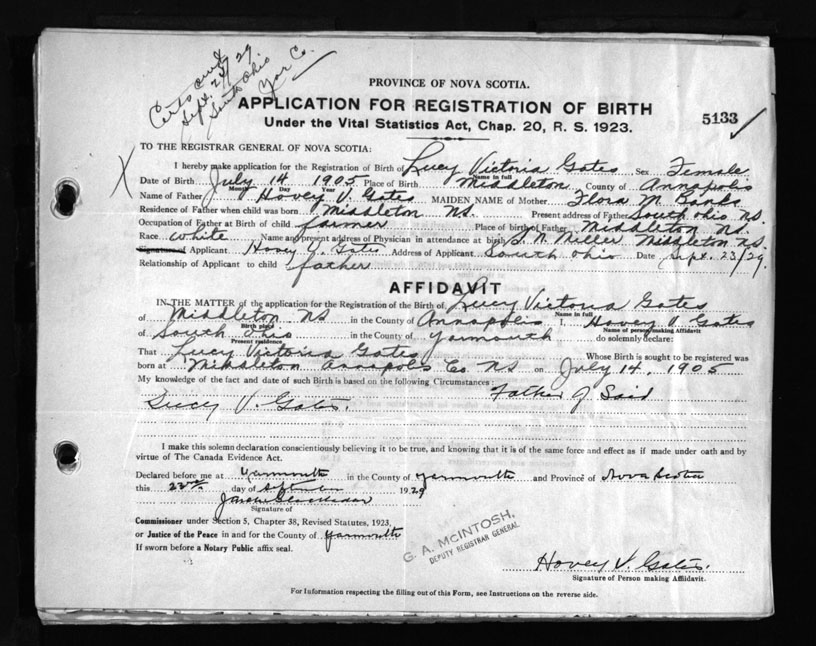 Certs
Sept. 24/29
South Ohio
Yar Co.
PROVINCE OF NOVA SCOTIA.
APPLICATION FOR REGISTRATION OF BIRTH
Under the Vital Statistics Act, Chap. 20, R. S. 1923.
5133
TO THE REGISTRAR GENERAL OF NOVA SCOTIA:
I hereby make application for the Registration of Birth of Lucy Victoria Gates Sex Female
Name in full
Date of Birth July 14 1905 Place of Birth Middleton County of Annapolis
Month Day Year
Name of Father Hovey V. Gates MAIDEN NAME of Mother Flora M. Banks
Residence of Father when child was born Middleton NS. Present address of Father South Ohio NS.
Occupation of Father at Birth of child farmer Place of birth of Father Middleton NS.
Race White Name and present address of Physician in attendance at birth Miller Middleton NS.
Signature of Applicant Hovey V. Gates Address of Applicant South Ohio Date Sept. 23/29.
Relationship of Applicant to child father
AFFIDAVIT
IN THE MATTER of the application for the Registration of the Birth of Lucy Victoria Gates
Name in full
of Middleton NS in the County of Annapolis I, Hovey V Gates
Birth place Name of person making Affidavit
of South Ohio in the County of Yarmouth do solemnly declare:
Present residence
That Lucy Victoria Gates Whose Birth is sought to be registered was
born at Middleton Annapolis Co. NS on July 14, 1905
My knowledge of the fact and date of such Birth is based on the following Circumstances: Father of Said
Lucy V. Gates.
I make this solemn declaration conscientiously believing it to be true, and knowing that it is of the same force and effect as if made under oath and by
virtue of The Canada Evidence Act.
Declared before me at Yarmouth in the County of Yarmouth and Province of Nova Scotia
this 23rd day of September 1929
Signature of
Commissioner under Section 5, Chapter 38, Revised Statutes, 1923,
or Justice of the Peace in and for the County of Yarmouth
If sworn before a Notary Public affix seal.
G. A. McINTOSH,
DEPUTY REGISTRAR GENERAL
Hovey V. Gates.
Signature of Person making Affidavit.
For Information respecting the filling out of this Form, see Instructions on the reverse side.